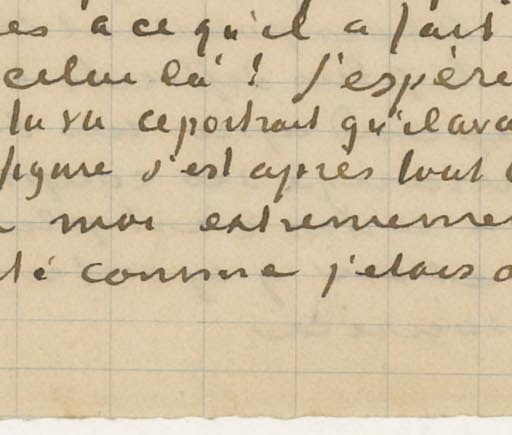 es a ce qu'il a fait
celui là ! J'espère
tu vu ce portrait qu'il ava
figure s'est après tout
moi extremement
té comme j'etais a